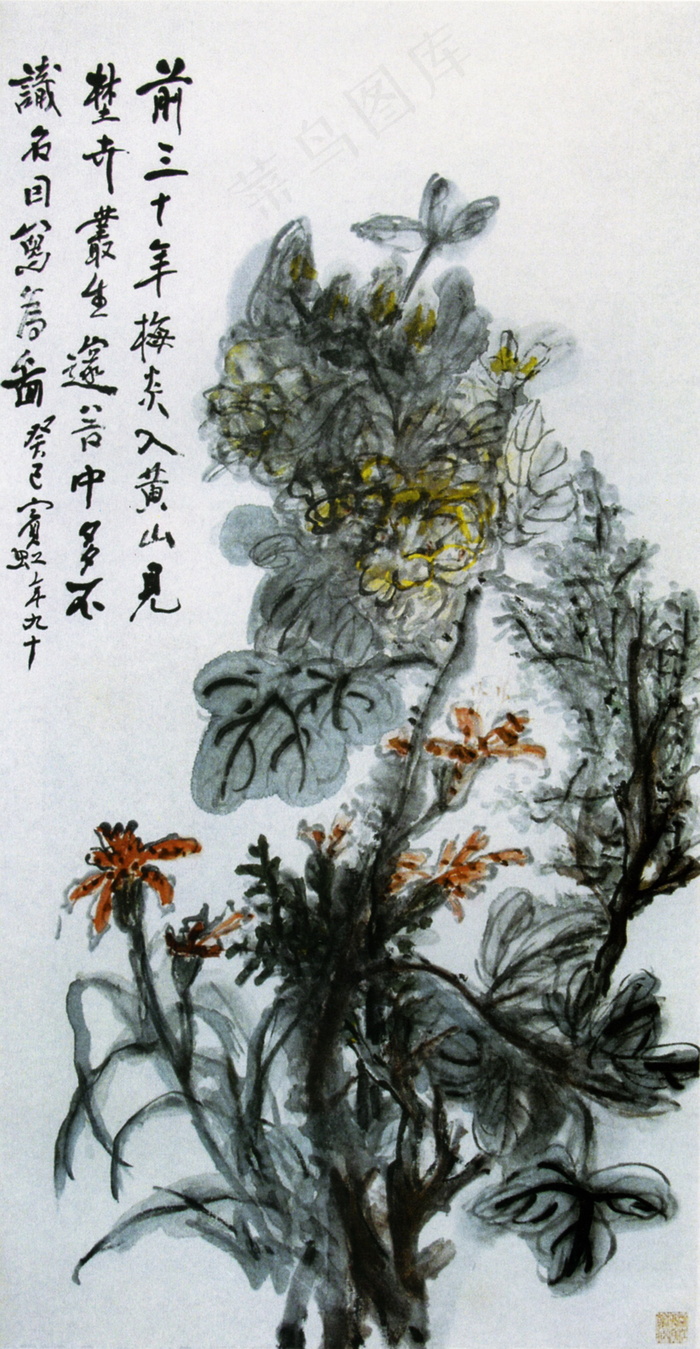 前三十年梅炎入黄山見
埜卉叢生邃谷中多不
識名因寫爲圖 癸巳賓虹年九十
菜鸟图库